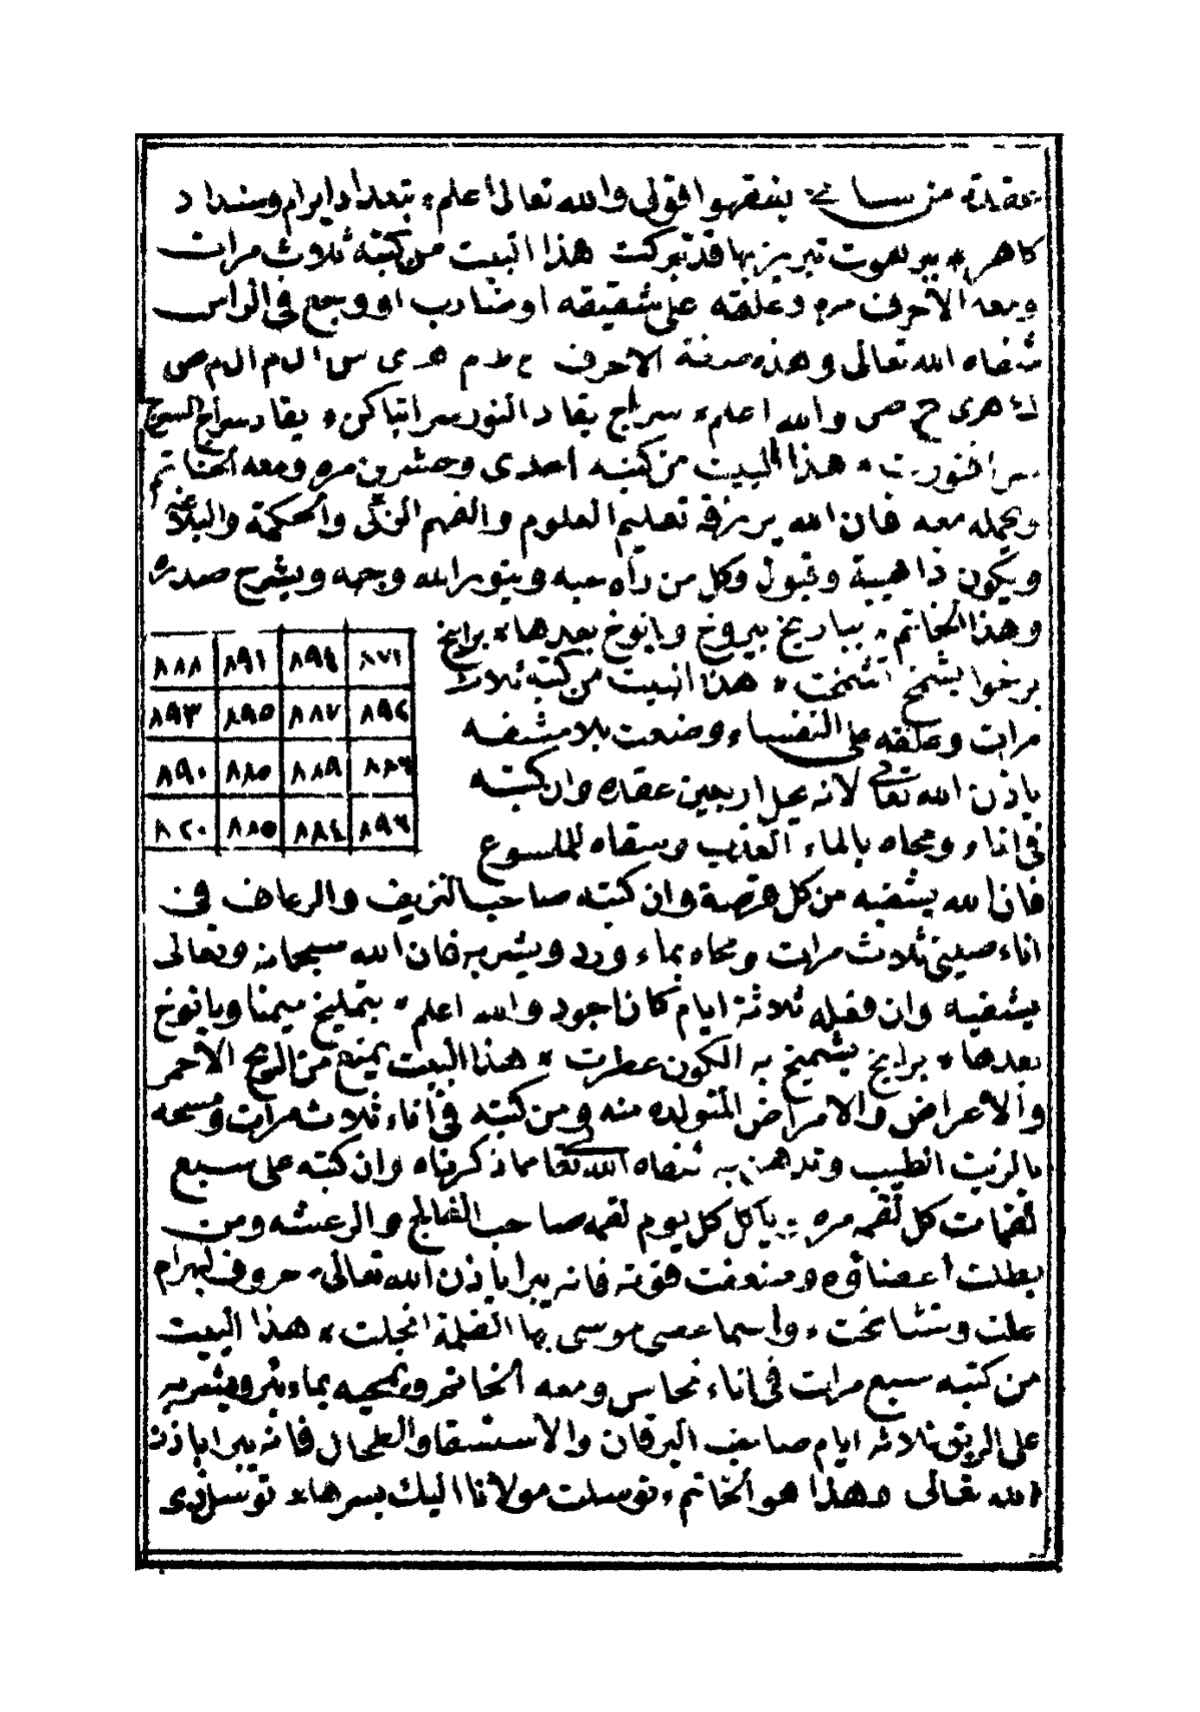 عقدة من لسانى يفقهوا قولى والله تعالى أعلم بتعداد ايرام وسنداد
كاهر بهوت تبريز بها قد تبركت هذا البيت من كتبه ثلاث مرات
ومعه الأحرف مره وعلقه على شقيقه او ضارب او وجع فى الراس
شفاه الله تعالى وهذه صفة الاحرف ع ط م هـ ى س ال م ال م ص
ك هـ ى ح ص والله اعلم سراج يقاد النور سرا بياكن يقاد سراج السرج
سرا فنورت هذا البيت من كتبه احدى وعشرين مره ومعه الخاتم
ويحمله معه فان الله يرزقه تعليم العلوم والفهم الزكى والحكمة والبلاغه
ويكون ذا هيبة وقبول وكل من رأه حبه وينور الله وجهه ويشرح صدره
وهذا الخاتم بباريخ بيروخ وبانوخ بعدها برايخ
برخوا بشمخ اشمخت هذا البيت من كتبه ثلاث
مرات وعلقه على النفساء وضعت بلا مشقه
باذن الله تعالى لانه يحل اربعين عقده وان كتبته
فى اناء ومحاه بالماء العذب وسقاه للملسوع
فان الله يشفيه من كل قرصة وان كتبه صاحب النزيف والرعاف فى
اناء صينى ثلاث مرات ومحاه بماء ورد ويشربه فان الله سبحانه وتعالى
يشفيه وان فعله ثلاثة ايام كان اجود والله اعلم بتمليخ ميمنا وبانوخ
بعدها برايخ بشميخ به الكون عطرت هذا البيت يمنع من الريح الأحمر
والأعراض والامراض المتولده منه ومن كتبه فى أناء ثلاث مرات ومسحه
بالزيت الطيب وتدهن به شفاه الله تعالى مما ذكرناه وان كتبه على سبع
لقمات كل لقمه مره ياكل كل يوم لقمه صاحب الفالج والرعشه ومن
بطلت أعضاؤه وضعفت قوته فانه يبرا باذن الله تعالى حروف لبهرام
علت وتشامخت واسما عصى موسى بها الظلمة انجلت هذا البيت
من كتبه سبع مرات فى اناء نحاس ومعه الخاتم ويمحيه بماء بئر ويشربه
على الريق ثلاثه ايام صاحب اليرقان والاستسقا والطحال فانه يبرا باذن
الله تعالى وهذا هو الخاتم توسلت مولانا اليك بسرها توسل ذى
٨٧١ ٨٩٤ ٨٩١ ٨٨٨
٨٩٢ ٨٨٧ ٨٩٥ ٨٩٣
٨٨٦ ٨٨٩ ٨٨٥ ٨٩٠
٨٩٦ ٨٨٤ ٨٨٥ ٨٢٠